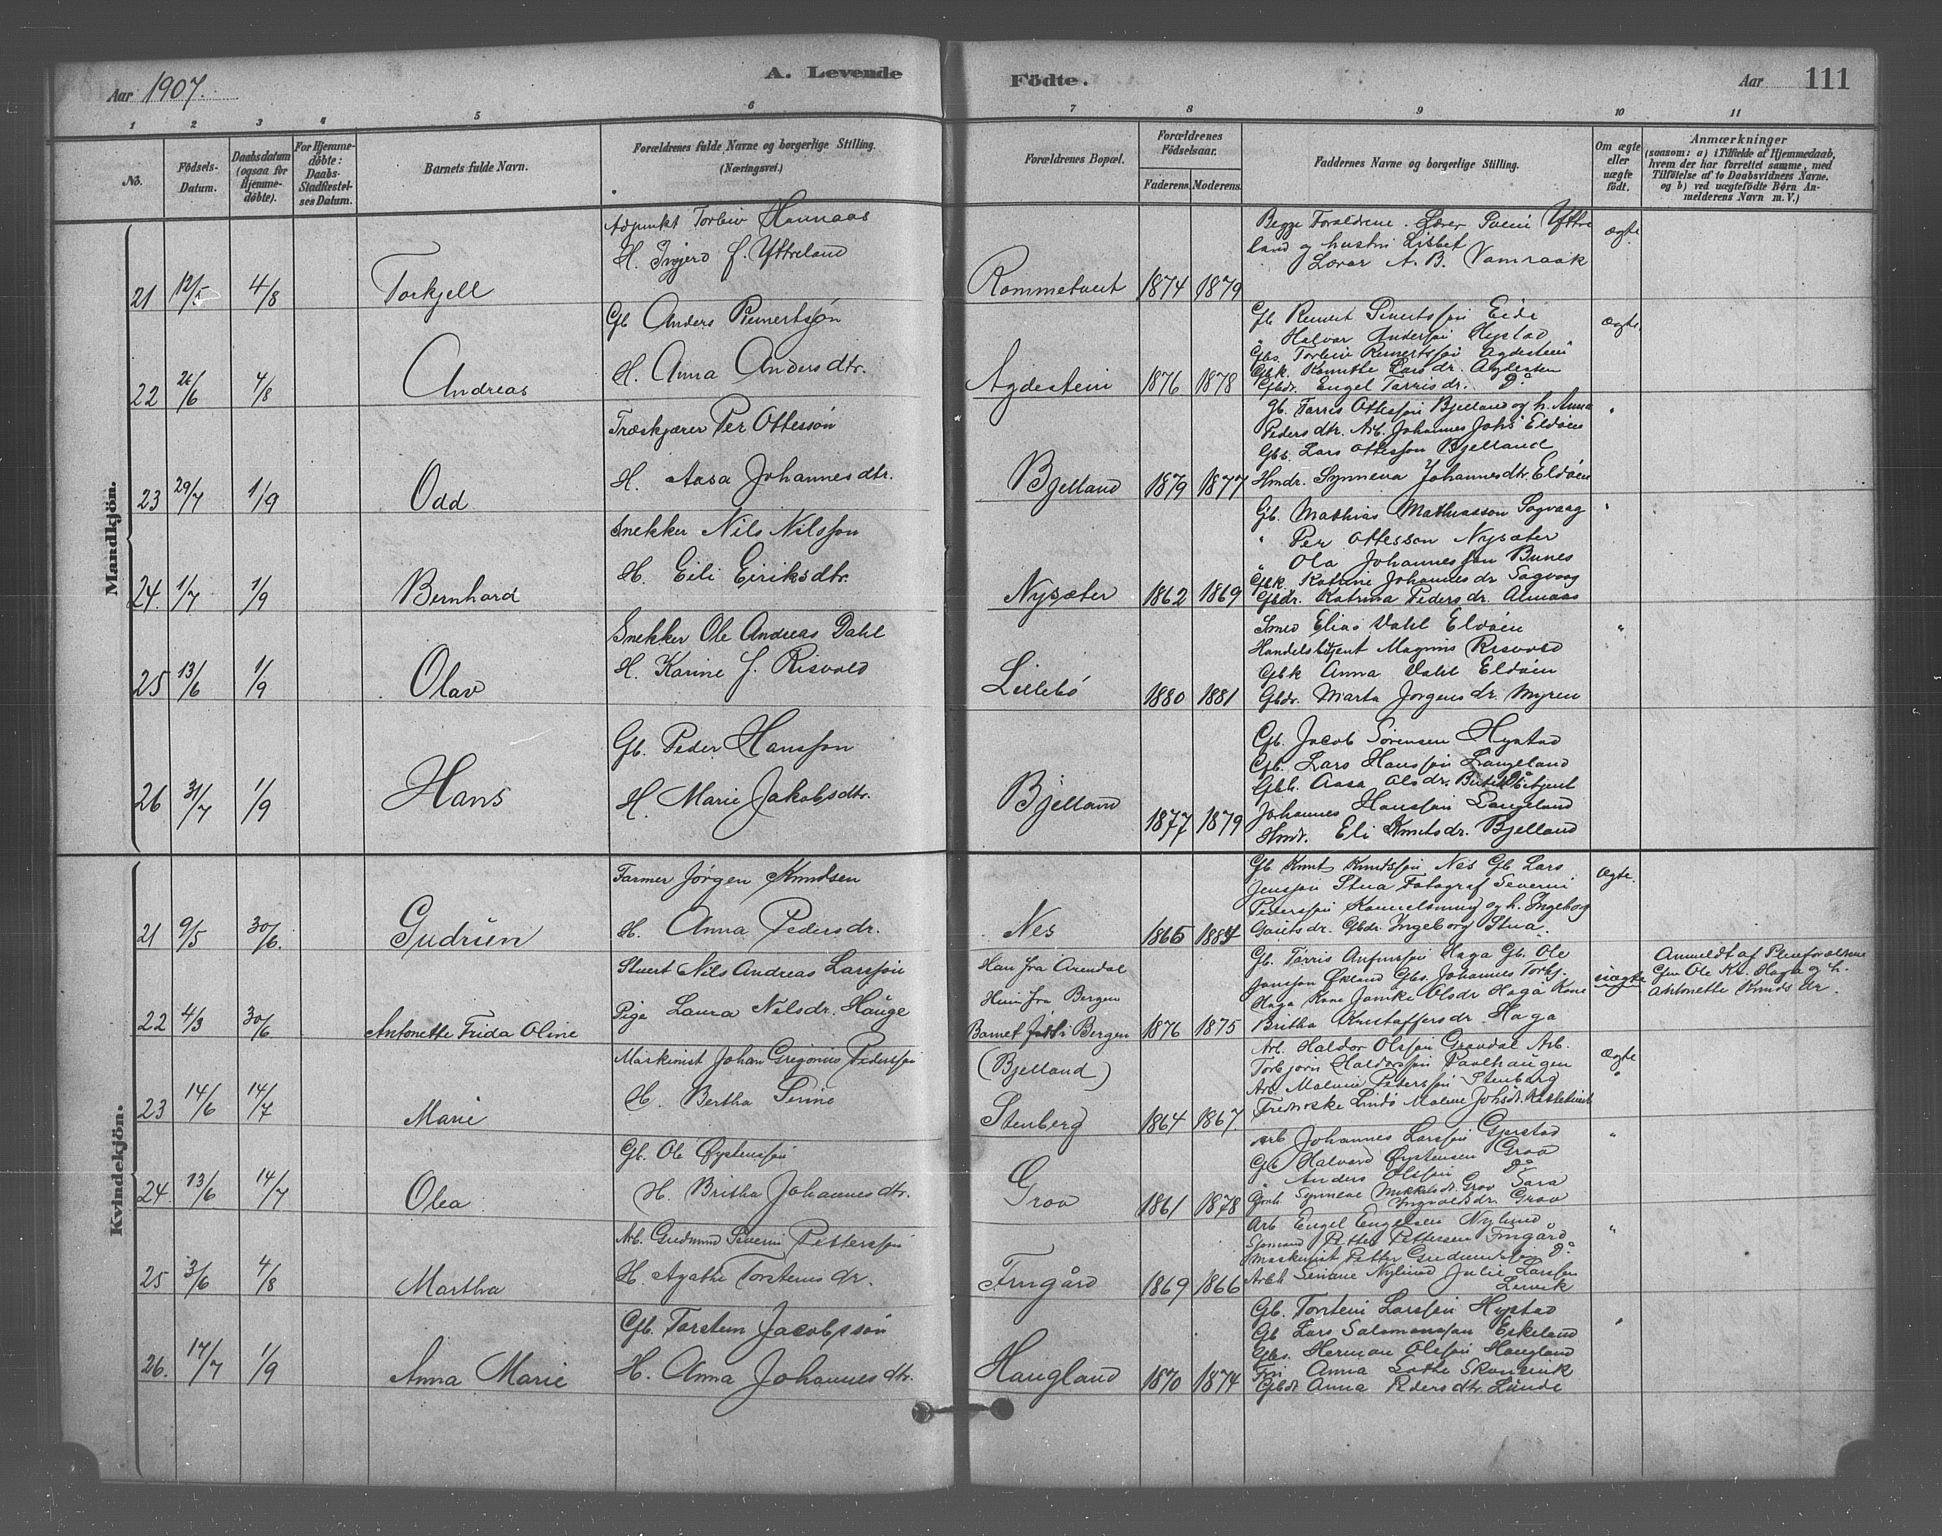 Aar 1907.
A. Levende
Födte.
Aar
111
1 2 3 4 5 6 7 8 9 10 11
No.
Födsels-Datum.
Daabsdatum (ogsaa for Hjemmedöbte).
For Hjemmedöbte: Daabs-Stadfæstelses Datum.
Barnets fulde Navn.
Forældrenes fulde Navne og borgerlige Stilling.
(Næringsvei.)
Forældrenes Bopæl.
Forældrenes Födselsaar.
Faderens. Moderens.
Faddernes Navne og borgerlige Stilling.
Om ægte eller uægte födt.
Anmærkninger
(saasom: a) i Tilfælde af Hjemmedaab,
hvem der har forrettet samme, med
Tilföielse af to Daabsvidners Navne,
og b) ved uægtefödte Börn Anmelderens Navn m. V.)
Mandkjön.
21 12/5 4/8 Torkjell
Adjunkt Torleiv Hannaas
H. Ingjerd f. Yttreland
Rommetveit 1874 1879
Begge Forældrene. Lærer Svein Yttre
land og hustru Lisbet
Lærer A. B. Vamraak
ægte
22 26/6 4/8 Andreas
Gb Anders Reinertsøn
H. Anna Andersdtr.
Agdestein 1876 1878
Gb. Reinert Sivertssøn Eide
" Halvor Anderssøn Hystad
Gbs. Torleiv Reinertssøn Agdestein
Gbk. Larsdr. Agdestein
Gbdr. Engel Tørrisdr. Do
ægte
23 29/7 1/9 Odd
Træskjærer Per Ottessøn
H. Aasa Johannesdtr.
Bjelland 1879 1877
Gb. Tørris Ottessøn Bjelland og h. Anna
Pedersdtr. Arb. Johannes Johs Eldøen
Gbs. Lars Ottessøn Bjelland
Hmdr. Synneva Johannesdtr. Eldøen
"
24. 1/7 1/9 Bernhard
Snekker Nils Nilssøn
H. Eili Eiriksdtr.
Nysæter 1862 1869
Gb. Mathias Mathiasson Sagvaag
" Per Ottesson Nysæter
" Ola Johannessøn Bunes
Gbk. Katrine Johannesdr Sagvaag
Gbdr. Katrina Pedersdr. Almaas
"
25 13/6 1/9 Olav
Snekker Ole Andreas Dahl
H. Karine f. Risvold
Lillebø 1880 1881
Smed Elias Dahl Eldøen
Handelsbetjent Magnus Risvold
Gbk Anna Dahl Eldøen
Gbdr. Marta Jørgensdr. Myren
"
26 31/7 1/9 Hans
Gb. Peder Hanssøn
H. Marie Jakobsdtr.
Bjelland 1877 1879
Gb. Jacob Sørensen Hystad
Gb. Lars Hanssøn Langeland
Gbh. Aasa Olsdr. Do
Johannes Hanssøn Langeland
Hmdr. Eli Knutsdr. Bjelland
Kvindekjön.
21 9/5 30/6. Gudrun
Farmer Jørgen Knudsen
H. Anna Pedersdr.
Nes 1865 1884
Gb Knut Knudssøn Nes Gb. Lars
Jenssøn Stua Fotograf Severin
Peterssøn og h. Ingeborg
Gbdr. Ingeborg Stua.
Ægte.
22 4/3 30/6 Antonette Frida Oline
Stuert Nils Andreas Larssøn
Pige Laura Nilsdr. Hauge
Han fra Arendal
Hun fra Bergen
Barnet født i Bergen
(Bjelland)
1876 1875
Gb. Tørris Anfinssøn Haga Gb. Ole
Jonssøn Økland Gbs. Johannes Torbj.
Haga Kone Jamke Olsdr Haga Kone
Britha Kristaffersdr. Haga
uægte
Anmeldt af Pleieforældrene
Gm Ole Kr. Haga og h.
Antonette Knudsdr.
23 14/6 14/7 Marie
Maskinist Johan Gregorius Pederssøn
H. Bertha Serine
Stenberg 1864 1867
Arb. Haldor Olssøn Grovdal Arb.
Torbjørn Haldorssøn Paulhaugen
Arb. Malvin Peterssøn Stenberg
Fredrikke Lindø Malene Johsdr.
Ægte
24. 13/6 14/7 Olea
Gb. Ole Øystenssøn
H. Britha Johannesdtr.
Grov 1861 1878
Arb Johannes Larssøn Gjerstad
Gb Halvard Øystensen Grov
" Anders Olssøn Do
Synneve Mikkelsdr. Grov Sara
Ingvaldsdr. Grov
"
25 3/6 4/8 Martha
Arb. Gudmund Severin Petterssøn
H. Agathe Torstensdr.
Frugård 1869 1866
Arb Engel Engelsen Nylund
Sjømand Petter Pettersen Frugård
Maskinist Petter Gudmundssøn Do
Arbh. Serine Nylund Julie Larssøn
Lervik
"
26. 17/7 1/9 Anna Marie
Gb. Torsten Jacobssøn
H. Anna Johannesdtr.
Haugland 1870 1874
Gb. Torstein Larssøn Hystad
Gb Lars Salomonssøn Eskeland
Gbs. Herman Olssøn Haugland
Frk Anna Lothe Skonevik
Gbdr Anna Pedersdtr. Lunde
"